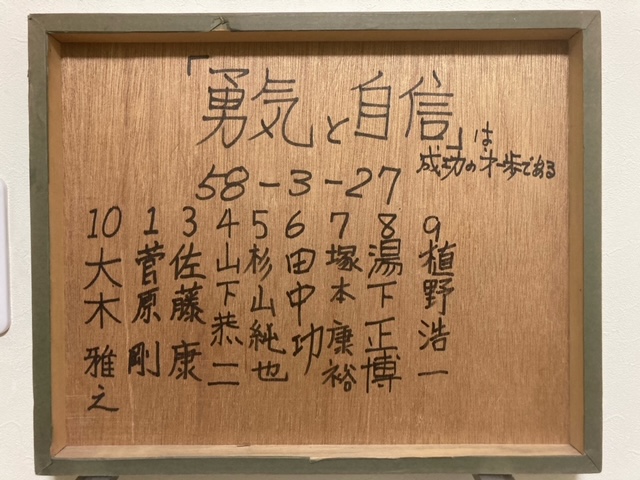 「勇気と自信」は
成功の才一歩である
58-3-27
10 大木雅之
1 菅原剛
3 佐藤康
4 山下恭二
5 杉山純也
6 田中功
7 塚本康裕
8 湯下正博
9 植野浩一